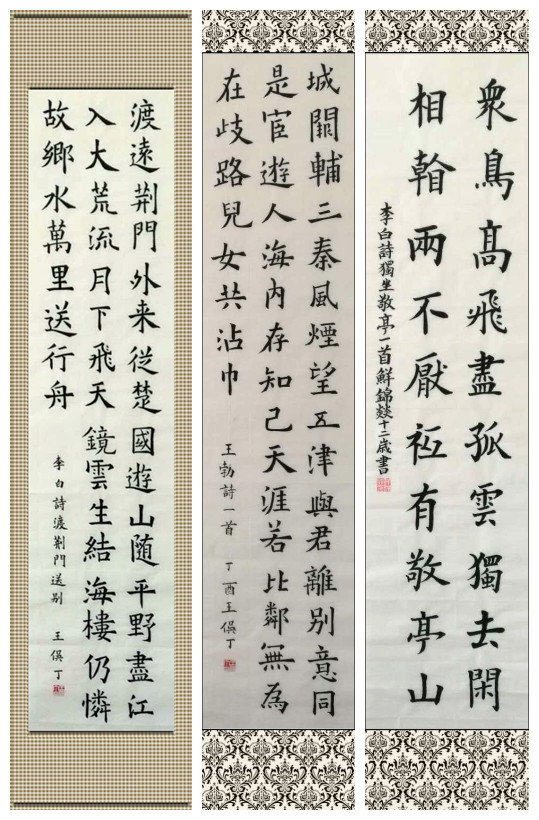 衆鳥髙飛盡孤雲獨去閑
相看兩不厭祗有敬亭山
李白詩獨坐敬亭一首鮮錦燚十二歲書
城闕輔三秦風煙望五津與君離別意同
是宦遊人海内存知己天涯若比鄰無為
在歧路兒女共沾巾
王勃詩一首 丁酉王俁丁
渡遠荆門外来從楚國遊山随平野盡江
入大荒流月下飛天鏡雲生結海樓仍憐
故鄉水萬里送行舟
李白詩渡荆門送别 王俁丁